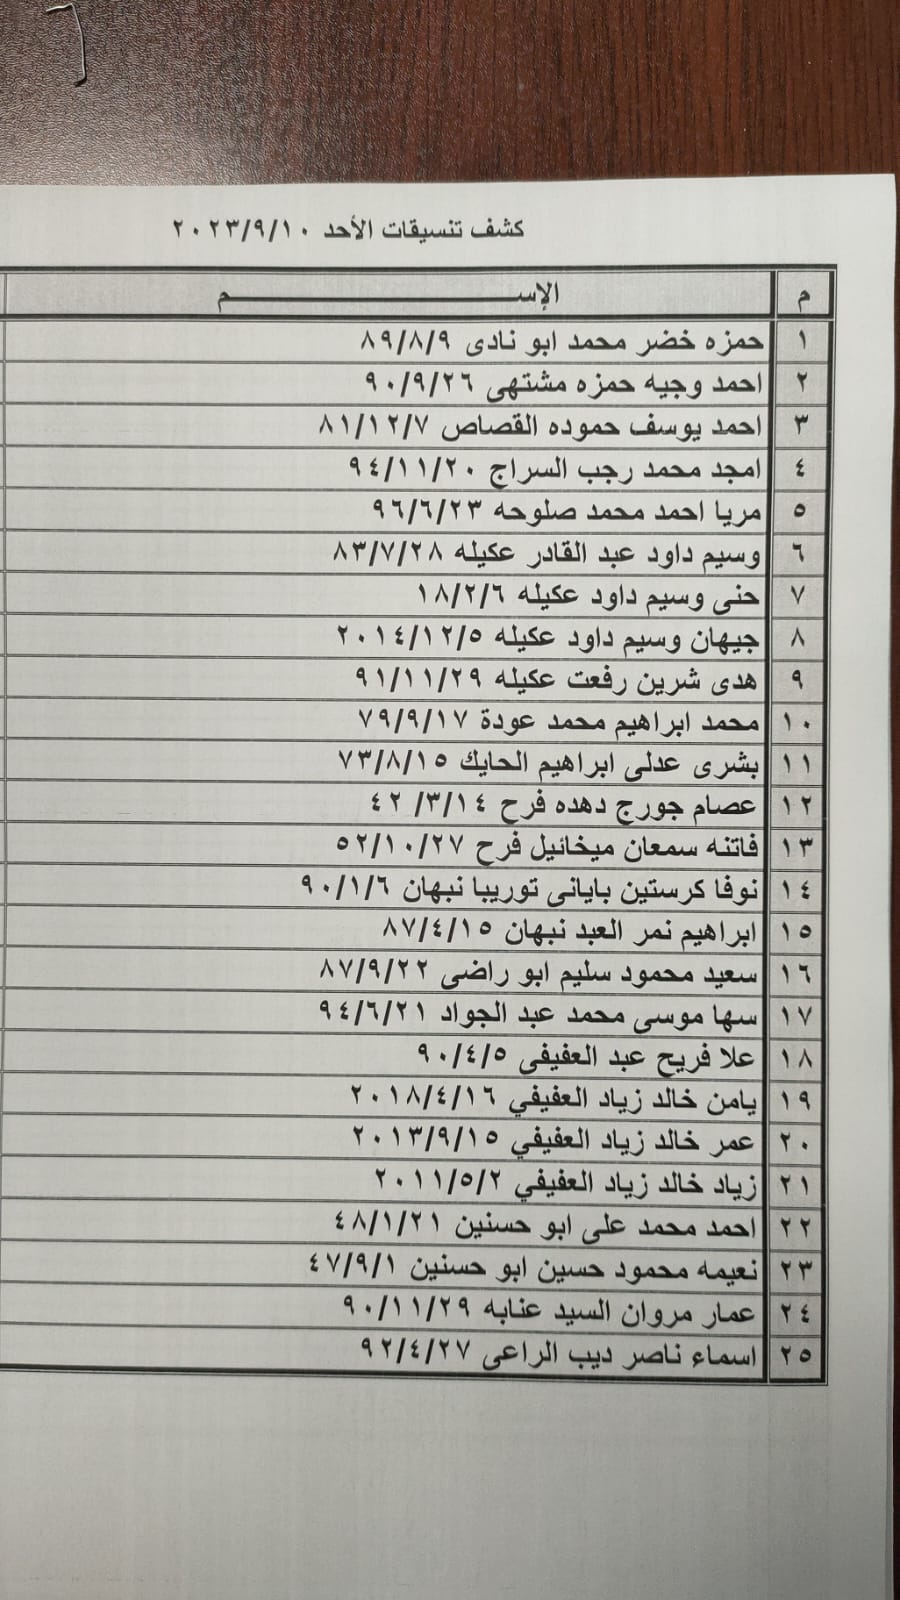 كشف تنسيقات الأحد ٢٠٢٣/٩/١٠
م الإســــــــــــــم
١ حمزه خضر محمد ابو نادى ٨٩/٨/٩
٢ احمد وجيه حمزه مشتهى ٩٠/٩/٢٦
٣ احمد يوسف حموده القصاص ٨١/١٢/٧
٤ امجد محمد رجب السراج ٩٤/١١/٢٠
٥ مريا احمد محمد صلوحه ٩٦/٦/٢٣
٦ وسيم داود عبد القادر عكيله ٨٣/٧/٢٨
٧ حنى وسيم داود عكيله ١٨/٢/٦
٨ جيهان وسيم داود عكيله ٢٠١٤/١٢/٥
٩ هدى شرين رفعت عكيله ٩١/١١/٢٩
١٠ محمد ابراهيم محمد عودة ٧٩/٩/١٧
١١ بشرى عدلى ابراهيم الحايك ٧٣/٨/١٥
١٢ عصام جورج دهده فرح ٤٢ /٣/١٤
١٣ فاتنه سمعان ميخائيل فرح ٥٢/١٠/٢٧
١٤ نوفا كرستين باياني توريبا نبهان ٩٠/١/٦
١٥ ابراهيم نمر العبد نبهان ٨٧/٤/١٥
١٦ سعيد محمود سليم ابو راضى ٨٧/٩/٢٢
١٧ سها موسى محمد عبد الجواد ٩٤/٦/٢١
١٨ علا فريح عبد العفيفى ٩٠/٤/٥
١٩ يامن خالد زياد العفيفي ٢٠١٨/٤/١٦
٢٠ عمر خالد زياد العفيفي ٢٠١٣/٩/١٥
٢١ زياد خالد زياد العفيفي ٢٠١١/٥/٢
٢٢ احمد محمد على ابو حسنين ٤٨/١/٢١
٢٣ نعيمه محمود حسين ابو حسنين ٤٧/٩/١
٢٤ عمار مروان السيد عنابه ٩٠/١١/٢٩
٢٥ اسماء ناصر ديب الراعى ٩٢/٤/٢٧